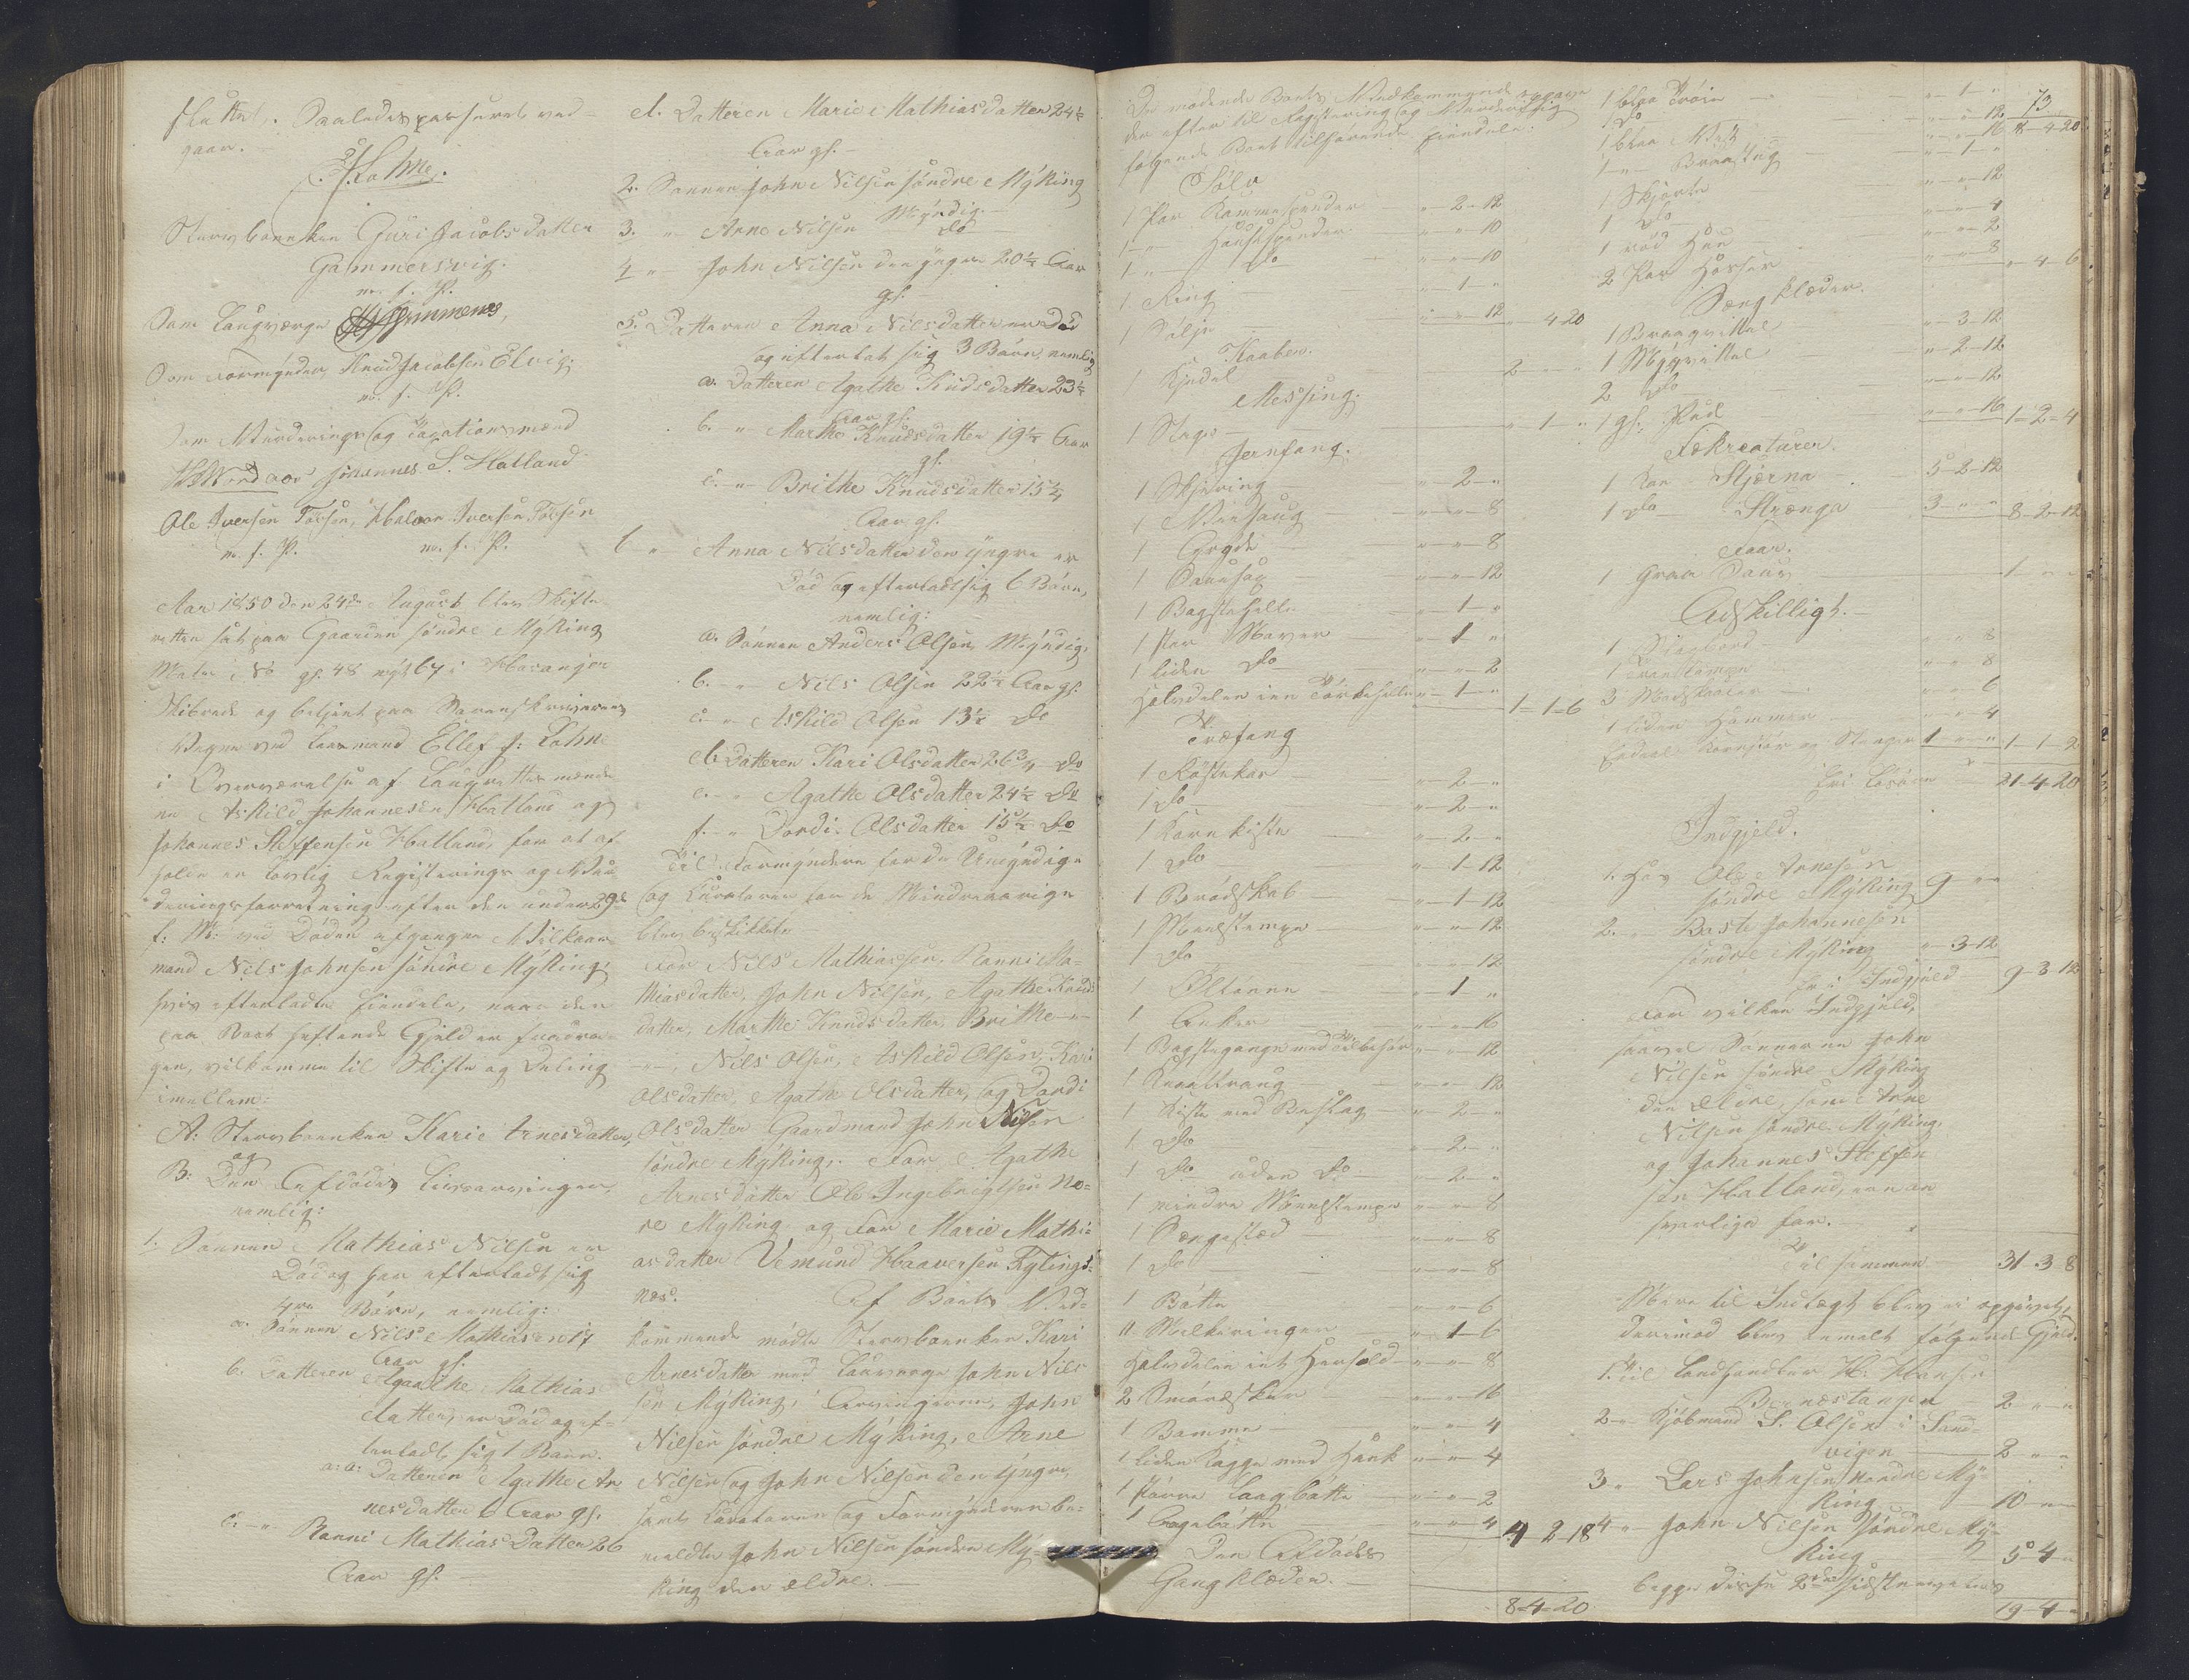 sluttet. Saaledes passeret ved-
gaar.
Lohne.
Stervboenken Guri Jacobsdatter
Gammersvig.
m. f. P.
Som Laugværge
Som Formynder, Knud Jacobsen Elvig.
m. f. P.
Som Vurderings og Taxationsmænd
Johannes S. Hatland
Ole Iversen Tössen, Halvor Iversen Tössen
m. f. P. m. f. P.
Aar 1850 den 24de August blev Skifte-
retten sat paa Gaarden söndre Myking
Matr: No gl. 48 nyt 64 i Hosanger
Skibrede og betjent paa Sorenskriverens
Vegne ved Lensmand Ellef J: Lohne
i Overværelse af Laugrettesmænde-
ne Askild Johannesen Hatland og
Johannes Steffensen Hatland, for at af-
holde en lovlig Registerings og Vur-
deringsforretning efter den under 29de
f: M: ved Döden afgangne Vilkaar-
mand Nels Johnsen söndre Myking,
hvis efterladte Eiendele, naar den
paa Boet heftende Gjeld er fradra-
gen, vilkomme til Skifte og Deling
imellem:
A: Stervboenken Karie Arnesdatter,
og
B: Den Afdödes Livsarvinger,
nemlig:
1. Sönnen Mathias Nilsen er
Död og har efterladt sig
4re Börn, nemlig:
a. Sönnen Nils Mathiasen 17
Aar gl.
b. Datteren Agaathe Mathias
datter, er Död og ef-
terladt sig 1 Barn.
a: a: Datteren Agathe Ar-
nesdatter 6 Aar gl.
c. " Ranni Mathias Datter 26
Aar gl. —
d. Datteren Marie Mathiasdatter 24½
Aar gl. —
2. Sönnen John Nilsen söndre Myking
Myndig. —
3. " Arne Nilsen Do
4 " John Nilsen den yngre 20½ Aar
gl.
5. Datteren Anna Nilsdatter er Död
og efterlat sig 3 Börn, nemlig
a. Datteren Agathe Knudsdatter 23½
Aar gl.
b. " Marthe Knudsdatter 19½ Aar
gl.
c. " Brithe Knudsdatter 15½
Aar gl.
6 " Anna Nilsdatter den yngre er
Död og efterladt sig 6 Börn,
nemlig:
a. Sönnen Anders Olsen Myndig.
b. — " Nils Olsen 22½ Aar gl.
c. " Askild Olsen 13½ Do
d. Datteren Kari Olsdatter 26¾ Do
e. " Agathe Olsdatter 24½ Do
f. " Dordi Olsdatter 15½ Do
Til Formyndere for de Umyndige
og Curatorer for de Mindreaarige
blev beskikket:
For Nils Mathiassen, Ranni Ma-
thiasdatter, John Nilsen, Agathe Knuds
datter, Marthe Knudsdatter, Brithe — " —
— " —, Nils Olsen, Askild Olsen, Kari
Olsdatter, Agathe Olsdatter, og Dordi
Olsdatter Gaardmand John Nilsen
söndre Myking. For Agathe
Arnesdatter Ole Ingebrigtsen no-
re Myking og For Marie Mathi-
asdatter Vemund Haaversen Kytings-
næs. Af Boets Ved-
kommende mödte Stervboenken Kari
Arnesdatter med Laugværge John Nils
sen Myking, Arvingerne, John
Nilsen söndre Myking, Arne
Nilsen og John Nilsen den Yngre,
samt Curatoren og Formynderen be-
meldte John Nilsen söndre My-
king den ældre. —
De mödende Boets Vedkommende opgave
der efter til Registering og Vurdering
fölgende Boet tilhörende Eiendele:
Sölv
1 Par Kammespender " — 2 — 12
1 " Handsespender " — " — 10
1 " Do " — " — 10
1 Ring " — 1 — "
1 Sölje " — " — 12 " 4 20
Kaaber.
1 Kjedel 2 — " — "
Messing.
1 Stage — " — 1 — "
Jernfang.
1 Skjæring — " — 2 — "
1 Vedsaug — " — " — 8
1 Gryde — " — " — 8
1 " — " — 12
1 Bagstehelle — " — 1 — "
1 Par — " — 1 "
1 liden Do " — " — 2
Halvdelen i en Törkehelle " — 1 — " 1 — 1 — 6
Træfang
1 Röstekar — " — 2 — "
1 Do — " — 2 — "
1 Kornkiste " — 2 — "
1 Do " — 1 — 12
1 Brödskab — " — 1 — 12
1 Meelstampe — " — " — 12
1 Do " — " — 12
1 Öltönne — " — 1 "
1 Anker — " — " — 16
1 med Tilbehör " — " — 12
1 Kornttroug " — " — 12
1 Kiste med Beslag — " — 2 — "
1 Do — " — 2 — "
1 Do uden Do — " — 2 — "
1 mindre Meelstampe " — " — 8
1 Sengested — " — " — 8
1 Do — " — " — 8
1 Bötte " — " — 6
11 Melkeringer — " — 1 — 6
Halvdelen i et — " — " — 8
2 Smöræsker — " — " — 16
1 Bomme — " — " — 4
1 liden Kagge med Hank " — " — 4
1 större Laagbötte — " — " — 2
1 — " — " — 4 4 2 18
Den Afdödes
Gangklæder. —
8 — 4 — 20
73
1 blaa Tröie — " — 1 — " 8 — 4 — 20
1 Do " — " — 12
1 blaa Vest " — " — 16
1 " " — 1 — "
1 Skjorte " — " — 12
1 Do " — " — 4
1 röd Hue " — " — 2
2 Par Hoser " — " — 8 " — 4 — 6
Sengklæder.
1 " — 3 — 12
1 " — 2 — 12
2 Do " — " — 12
1 gl. Pude " — " — 16 1 — 2 — 4
Fækreaturer.
1 Koe Stjerna — 5 — 2 — 12
1 Do Strænga 3 — " — " 8 — 2 — 12
Faar.
1 Graa 1 — " "
Adskilligt. —
1 — " — " 8
1 Tranlampe — " — " 8
3 — " — " 6
1 liden Hammer — " — " — 4
og Stænger 1 — " — " 1 — 1 — 2
Er i Lösöre 21 — 4 — 20
Indgjeld.
1. Hos Ole Arnesen
söndre Myking 9 — " "
2. " Baste Johannesen
söndre Myking " — 3 — 12
Er i Indgjeld 9 — 3 — 12
For vilken Indgjeld,
saavel Sönnerne John
Nilsen söndre Myking
den Ældre, som Arne
Nilsen söndre Myking,
og Johannes Steffen
sen Hatland, ere an
svarlige for. —
Til sammen 31 — 3 — 8
Mere til Indtægt blev ei opgivet,
derimod blev anmelt fölgende Gjeld.
1. Til Landhandler H. Hansen
2 — " — "
2 — " Kjöbmand S. Olsen i Sand-
vigen — 2 — " — "
3 " Lars Johnsen nordre My-
king 10 — " —
4 " John Nilsen Söndre My-
king — 5 — 4 —
begge disse 2de sidstnævnte
19 — 4 — "